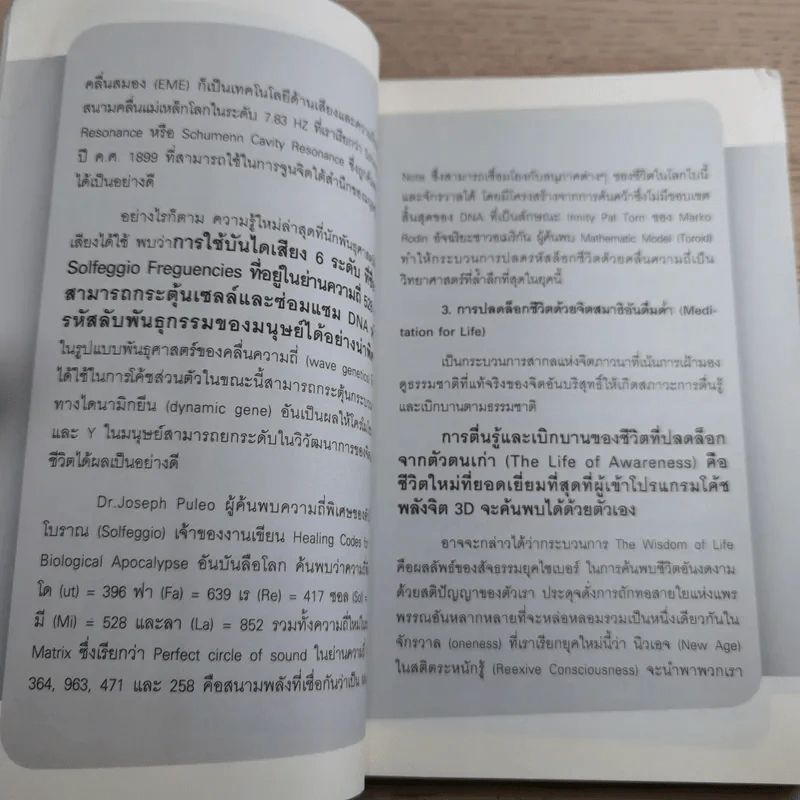 คลื่นสมอง (EME) ก็เป็นเทคโนโลยีด้านเสียงและความ
สนามคลื่นแม่เหล็กโลกในระดับ 7.83 HZ ที่เราเรียกว่า
Resonance หรือ Schumenn Cavity Resonance ซึ่งถูกค้น
ปี ค.ศ. 1899 ที่สามารถใช้ในการจูนจิตใต้สำนึกของ
ได้เป็นอย่างดี
อย่างไรก็ตาม ความรู้ใหม่ล่าสุดที่นักพันธุศาสตร์
เสียงได้ใช้ พบว่าการใช้บันไดเสียง 6 ระดับ ที่
Solfeggio Freguencies ที่อยู่ในย่านความถี่ 528
สามารถกระตุ้นเซลล์และซ่อมแซม DNA
รหัสลับพันธุกรรมของมนุษย์ได้อย่างน่า
ในรูปแบบพันธุศาสตร์ของคลื่นความถี่ (wave genetics)
ได้ใช้ในการโค้ชส่วนตัวในขณะนี้สามารถกระตุ้นกระบวน
ทางไดนามิกยีน (dynamic gene) อันเป็นผลให้โครโมโซม
และ Y ในมนุษย์สามารถยกระดับในวิวัฒนาการของจิต
ชีวิตได้ผลเป็นอย่างดี
Dr.Joseph Puleo ผู้ค้นพบความถี่พิเศษของ
โบราณ (Solfeggio) เจ้าของงานเขียน Healing Codes for
Biological Apocalypse อันบันลือโลก ค้นพบว่าความถี่
โด (ut) = 396 ฟา (Fa) = 639 เร (Re) = 417 ซอล (Sol) =
มี (Mi) = 528 และลา (La) = 852 รวมทั้งความถี่ใหม่ใน
Matrix ซึ่งเรียกว่า Perfect circle of sound ในย่านความถี่
364, 963, 471 และ 258 คือสนามพลังที่เชื่อกันว่าเป็น
Note ซึ่งสามารถเชื่อมโยงกับอนุภาคต่างๆ ของชีวิตในโลกใบนี้
และจักรวาลได้ โดยมีโครงสร้างจากการค้นคว้าซึ่งไม่มีขอบเขต
สิ้นสุดของ DNA ที่เป็นลักษณะ Innity Pat Torn ของ Marko
Rodin อัจฉริยะชาวอเมริกัน ผู้ค้นพบ Mathematic Model (Toroid)
ทำให้กระบวนการปลดรหัสล็อกชีวิตด้วยคลื่นความถี่เป็น
วิทยาศาสตร์ที่ล้ำลึกที่สุดในยุคนี้
3. การปลดล็อกชีวิตด้วยจิตสมาธิอันดื่มด่ำ (Medi-
tation for Life)
เป็นกระบวนการสากลแห่งจิตภาวนาที่เน้นการเฝ้ามอง
ดูธรรมชาติที่แท้จริงของจิตอันบริสุทธิ์ให้เกิดสภาวะการตื่นรู้
และเบิกบานตามธรรมชาติ
การตื่นรู้และเบิกบานของชีวิตที่ปลดล็อก
จากตัวตนเก่า (The Life of Awareness) คือ
ชีวิตใหม่ที่ยอดเยี่ยมที่สุดที่ผู้เข้าโปรแกรมโค้ช
พลังจิต 3D จะค้นพบได้ด้วยตัวเอง
อาจจะกล่าวได้ว่ากระบวนการ The Wisdom of Life
คือผลลัพธ์ของสัจธรรมยุคไซเบอร์ ในการค้นพบชีวิตอันงดงาม
ด้วยสติปัญญาของตัวเรา ประดุจดั่งการถักทอสายใยแห่งแพร
พรรณอันหลากหลายที่จะหล่อหลอมรวมเป็นหนึ่งเดียวกันใน
จักรวาล (oneness) ที่เราเรียกยุคใหม่นี้ว่า นิวเอจ (New Age)
ในสติตระหนักรู้ (Reexive Consciousness) จะนำพาพวกเรา